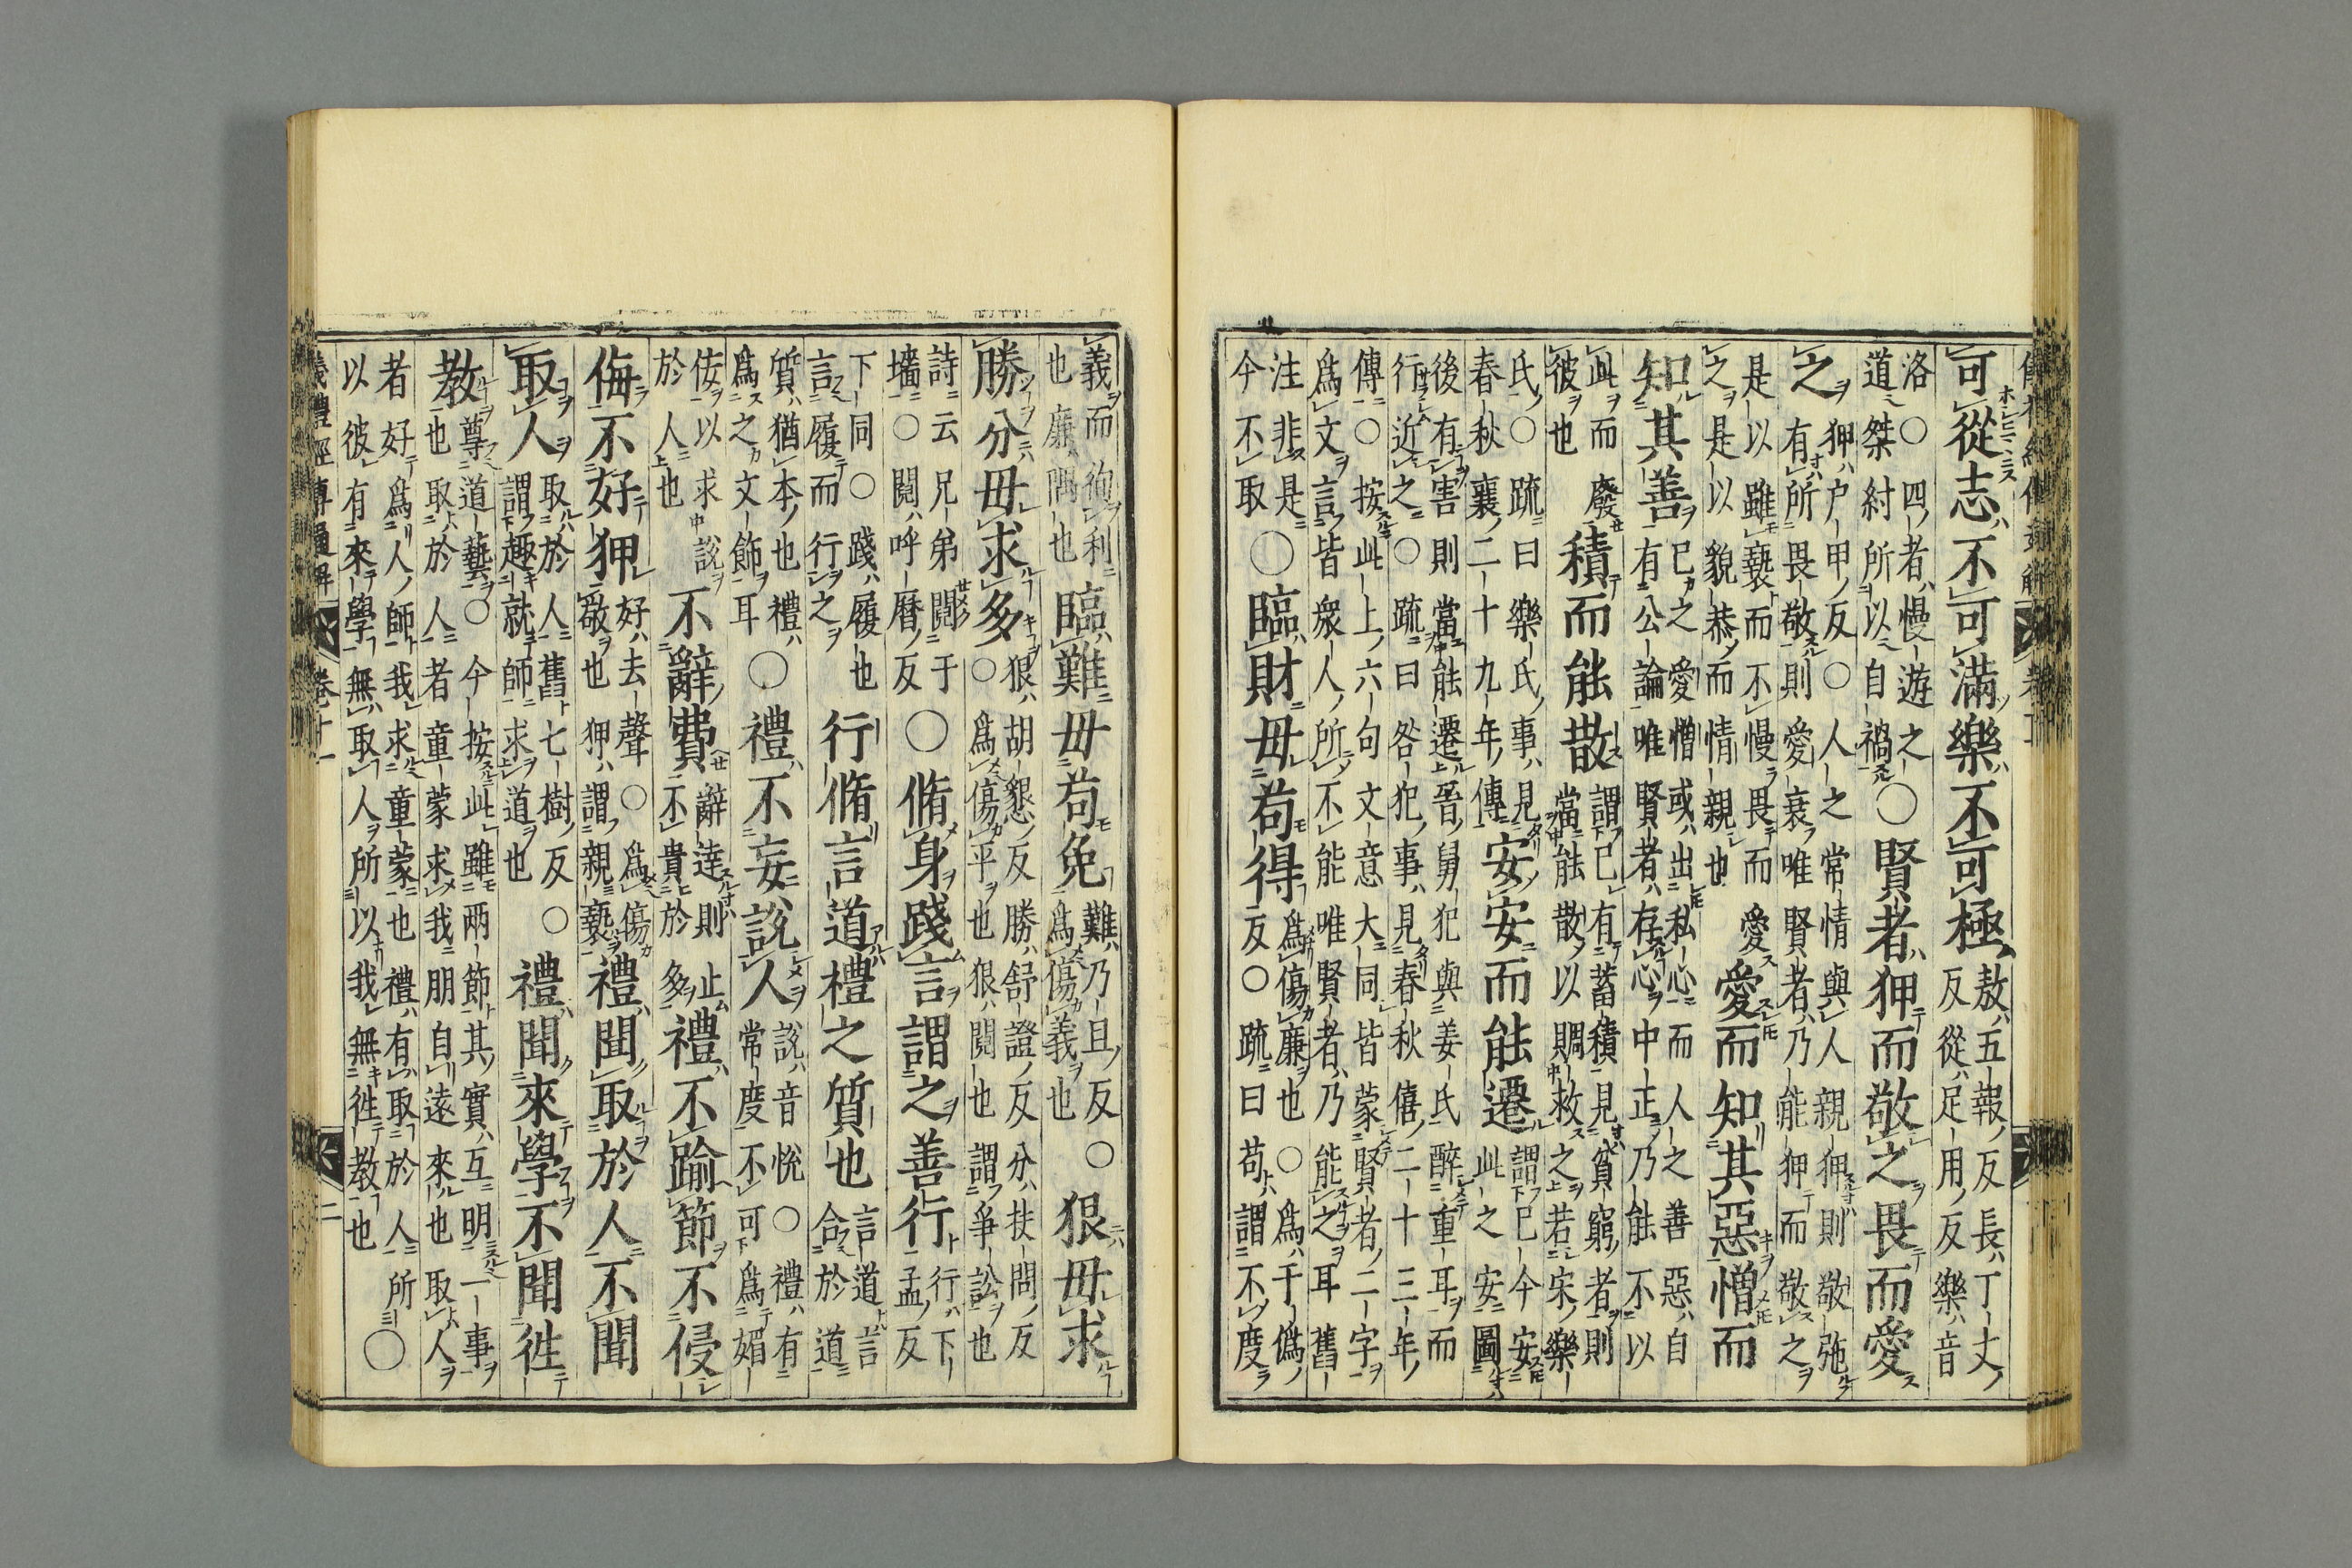 可從志不可滿樂不可極
敖五報反長丁丈
反從足用反樂音
洛○四者慢遊之
道桀紂所以自禍
○賢者狎而敬之畏而愛
之
狎户甲反○人之常情與人親狎則敬弛
有所畏敬則愛衰唯賢者乃能狎而敬之
是以雖褻而不慢畏而愛
之是以貌恭而情親也
愛而知其惡憎而
知其善
已之愛憎或出私心而人之善惡自
有公論唯賢者存心中正乃能不以
此而廢
彼也
積而能散
謂已有蓄積見貧窮者則
當能散以賙救之若宋樂
氏○疏曰樂氏事見
春秋襄二十九年傳
安安而能遷
謂已今安
此之安圖
後有害則當能遷晉舅犯與姜氏醉重耳而
行近之○疏曰咎犯事見春秋僖二十三年
傳○按此上六句文意大同皆蒙賢者二字
爲文言皆衆人所不能唯賢者乃能之耳舊
注非是
今不取
○臨財毋苟得
爲傷廉也○爲于僞
反○疏曰苟謂不度
義而徇利
也廉隅也
臨難毋苟免
難乃且反○
爲傷義也
狠毋求
勝分毋求多
狠胡懇反勝舒證反分扶問反
○爲傷平也狠鬩也謂爭訟也
詩云兄弟鬩于
墻○鬩呼曆反
○脩身踐言謂之善行
行下
孟反
下同○踐履也
言履而行之
行脩言道禮之質也
言道言
合於道
質猶本也禮
爲之文飾耳
○禮不妄說人
說音悅○禮有
常度不可爲媚
佞以求說
於人也
不辭費
辭達則止
不貴於多
禮不踰節不侵
侮不好狎
好去聲○爲傷
敬也狎謂親褻
禮聞取於人不聞
取人
取於人舊七樹反○
謂趣就師求道也
禮聞來學不聞往
教
尊道藝○今按此雖兩節其實互明一事
也取於人者童蒙求我朋自遠來也取人
者好爲人師我求童蒙也禮有取於人所
以彼有來學無取人所以我無往教也
○
儀禮經傳通解 卷十一 二